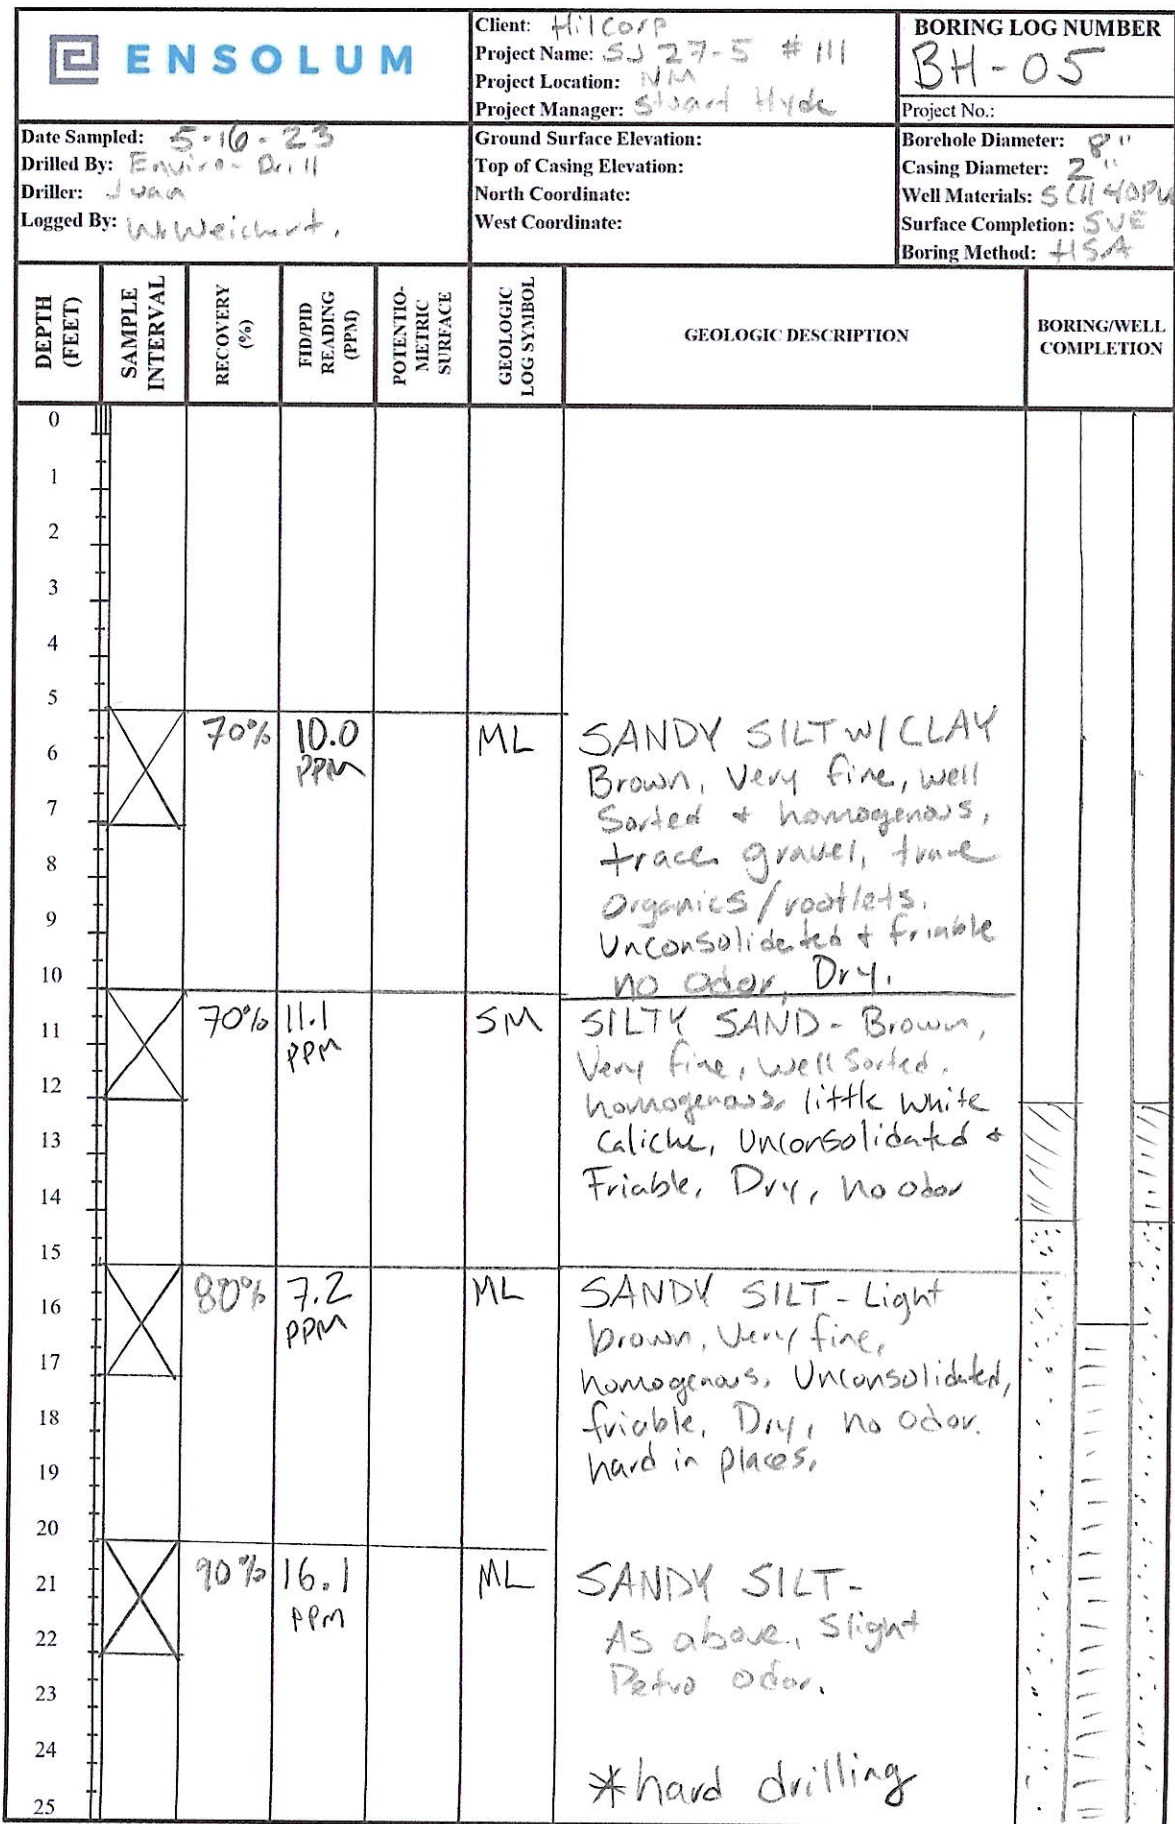 ENSOLUM
Client: Hilcorp
Project Name: SJ 27-5 #111
Project Location: NM
Project Manager: Stuart Hyde
BORING LOG NUMBER
BH-05
Project No.:
Date Sampled: 5-16-23
Drilled By: Enviro-Drill
Driller: Juan
Logged By: W. Weichert.
Ground Surface Elevation:
Top of Casing Elevation:
North Coordinate:
West Coordinate:
Borehole Diameter: 8"
Casing Diameter: 2"
Well Materials: SCH 40PVC
Surface Completion: SVE
Boring Method: HSA
DEPTH (FEET)
SAMPLE INTERVAL
RECOVERY (%)
FID/PID READING (PPM)
POTENTIO-METRIC SURFACE
GEOLOGIC LOG SYMBOL
GEOLOGIC DESCRIPTION
BORING/WELL COMPLETION
0
1
2
3
4
5
6 70% 10.0 PPM ML SANDY SILT W/ CLAY
Brown, Very fine, well
7
Sorted & homogenous,
8
trace gravel, trace
9
Organics/rootlets.
Unconsolidated & friable
10
no odor, Dry.
11 70% 11.1 PPM SM SILTY SAND - Brown,
Very fine, well sorted,
12
homogenous, little white
13
Caliche, Unconsolidated &
14
Friable, Dry, no odor
15
16 80% 7.2 PPM ML SANDY SILT - Light
brown, Very fine,
17
homogenous, Unconsolidated,
18
friable, Dry, no odor.
19
hard in places,
20
21 90% 16.1 PPM ML SANDY SILT -
22
As above, Slight
23
Petro odor.
24
*hard drilling
25